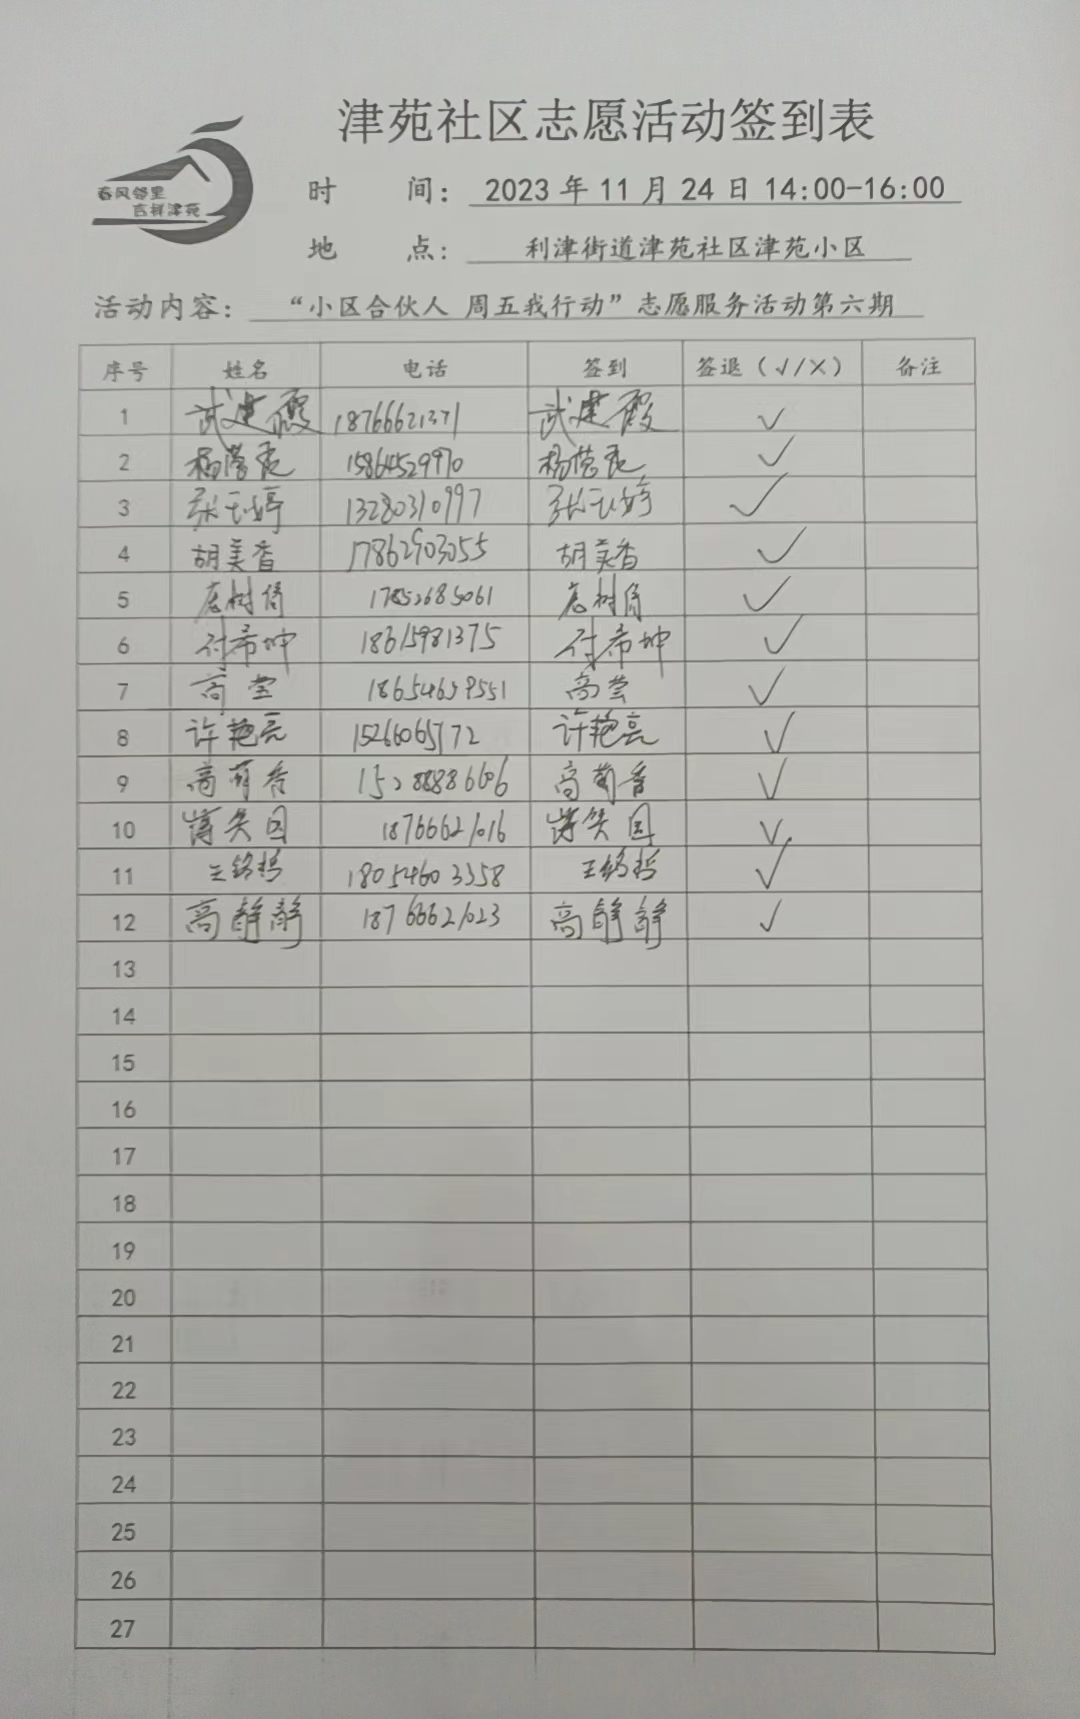 津苑社区志愿活动签到表
春风邻里
吉祥津苑
时 间: 2023 年 11 月 24 日 14:00-16:00
地 点: 利津街道津苑社区津苑小区
活动内容: “小区合伙人 周五我行动”志愿服务活动第六期
序号 姓名 电话 签到 签退（√/×） 备注
1 武建霞 18766621371 武建霞 √
2 杨莹亮 15864529970 杨莹亮 √
3 张玉婷 13280310997 张玉婷 √
4 胡美香 17862903055 胡美香 √
5 树倩 17852685061 树倩 √
6 付希坤 18615981375 付希坤 √
7 高莹 18654659551 高莹 √
8 许艳亮 15266065772 许艳亮 √
9 高萌香 15288886606 高萌香 √
10 18766621016 √
11 王铭哲 18054603358 王铭哲 √
12 高静静 18766621023 高静静 √
13
14
15
16
17
18
19
20
21
22
23
24
25
26
27